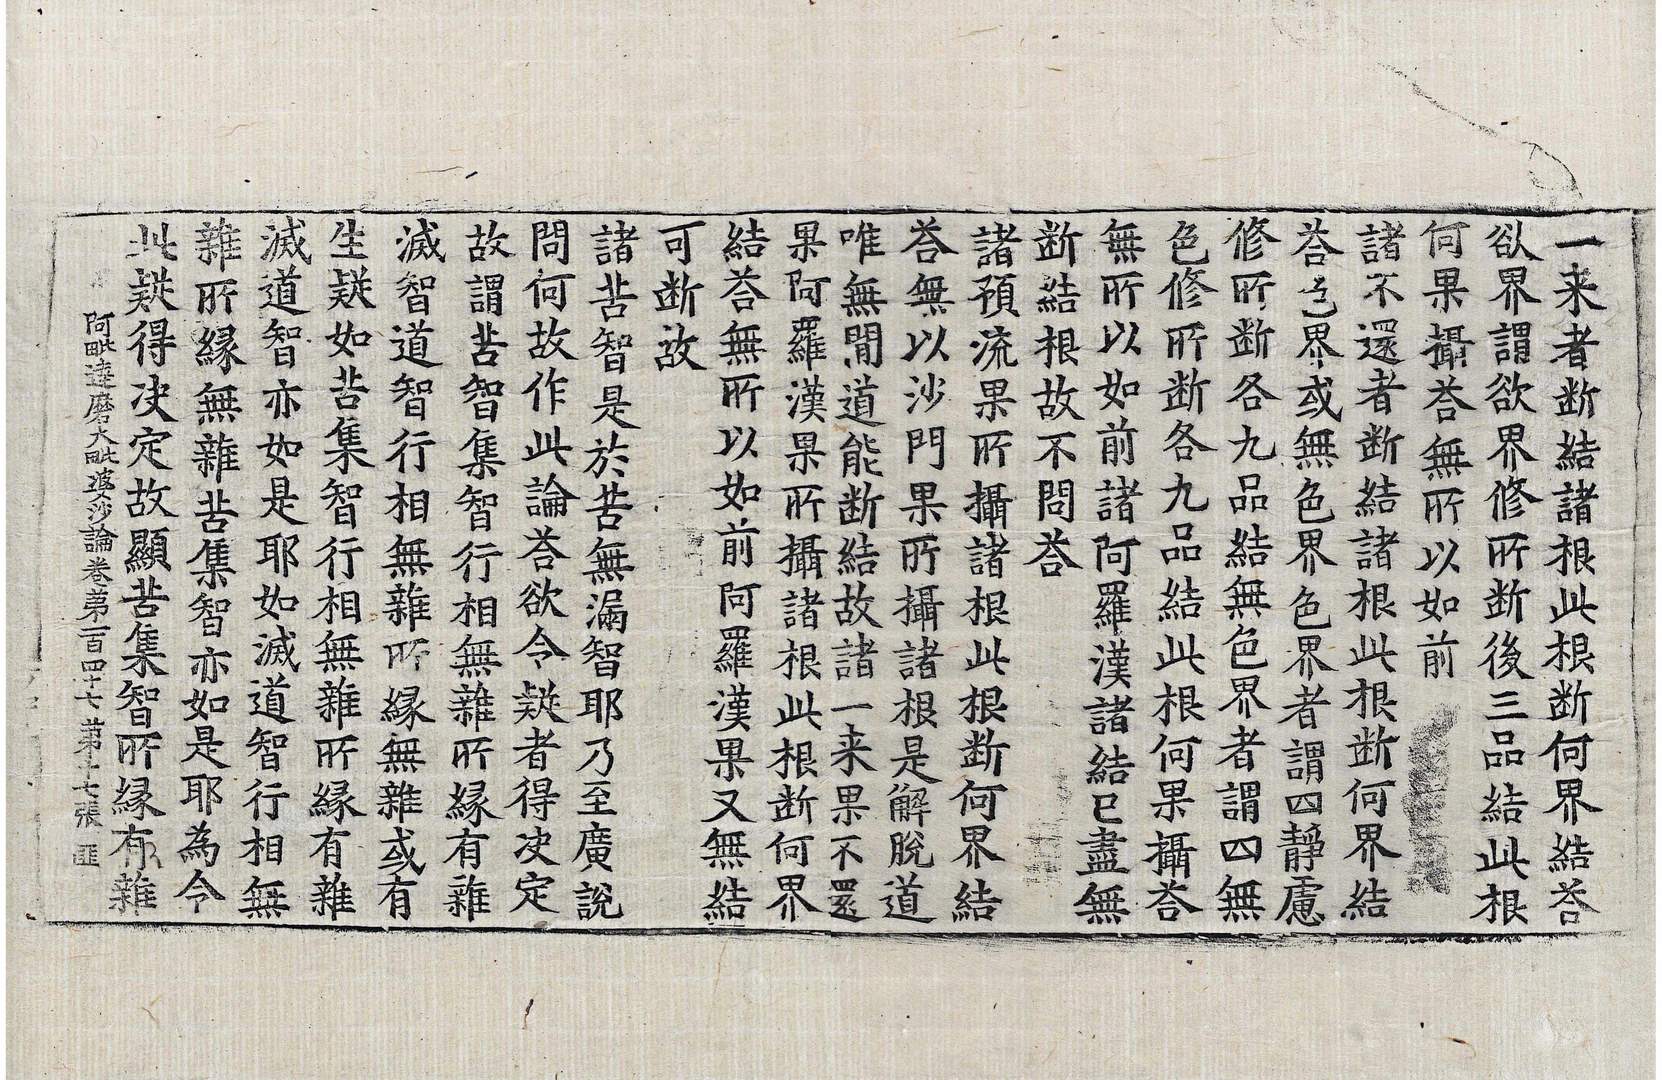 一来者断結諸根此根断何界結荅
欲界謂欲界修所断後三品結此根
何果攝荅無所以如前
諸不還者断結諸根此根断何界結
荅色界或無色界色界者謂四靜慮
修所断各九品結無色界者謂四無
色修所断各九品結此根何果攝荅
無所以如前諸阿羅漢諸結已盡無
断結根故不問荅
諸預流果所攝諸根此根断何界結
荅無以沙門果所攝諸根是解脫道
唯無閒道能断結故諸一来果不還
果阿羅漢果所攝諸根此根断何界
結荅無所以如前阿羅漢果又無結
可断故
諸苦智是於苦無漏智耶乃至廣說
問何故作此論荅欲令疑者得决定
故謂苦智集智行相無雜所緣有雜
滅智道智行相無雜所緣無雜或有
生疑如苦集智行相無雜所緣有雜
滅道智亦如是耶如滅道智行相無
雜所緣無雜苦集智亦如是耶為令
此疑得决定故顯苦集智所緣有雜
阿毗達磨大毗婆沙論卷第一百四十七 第十七張 匪